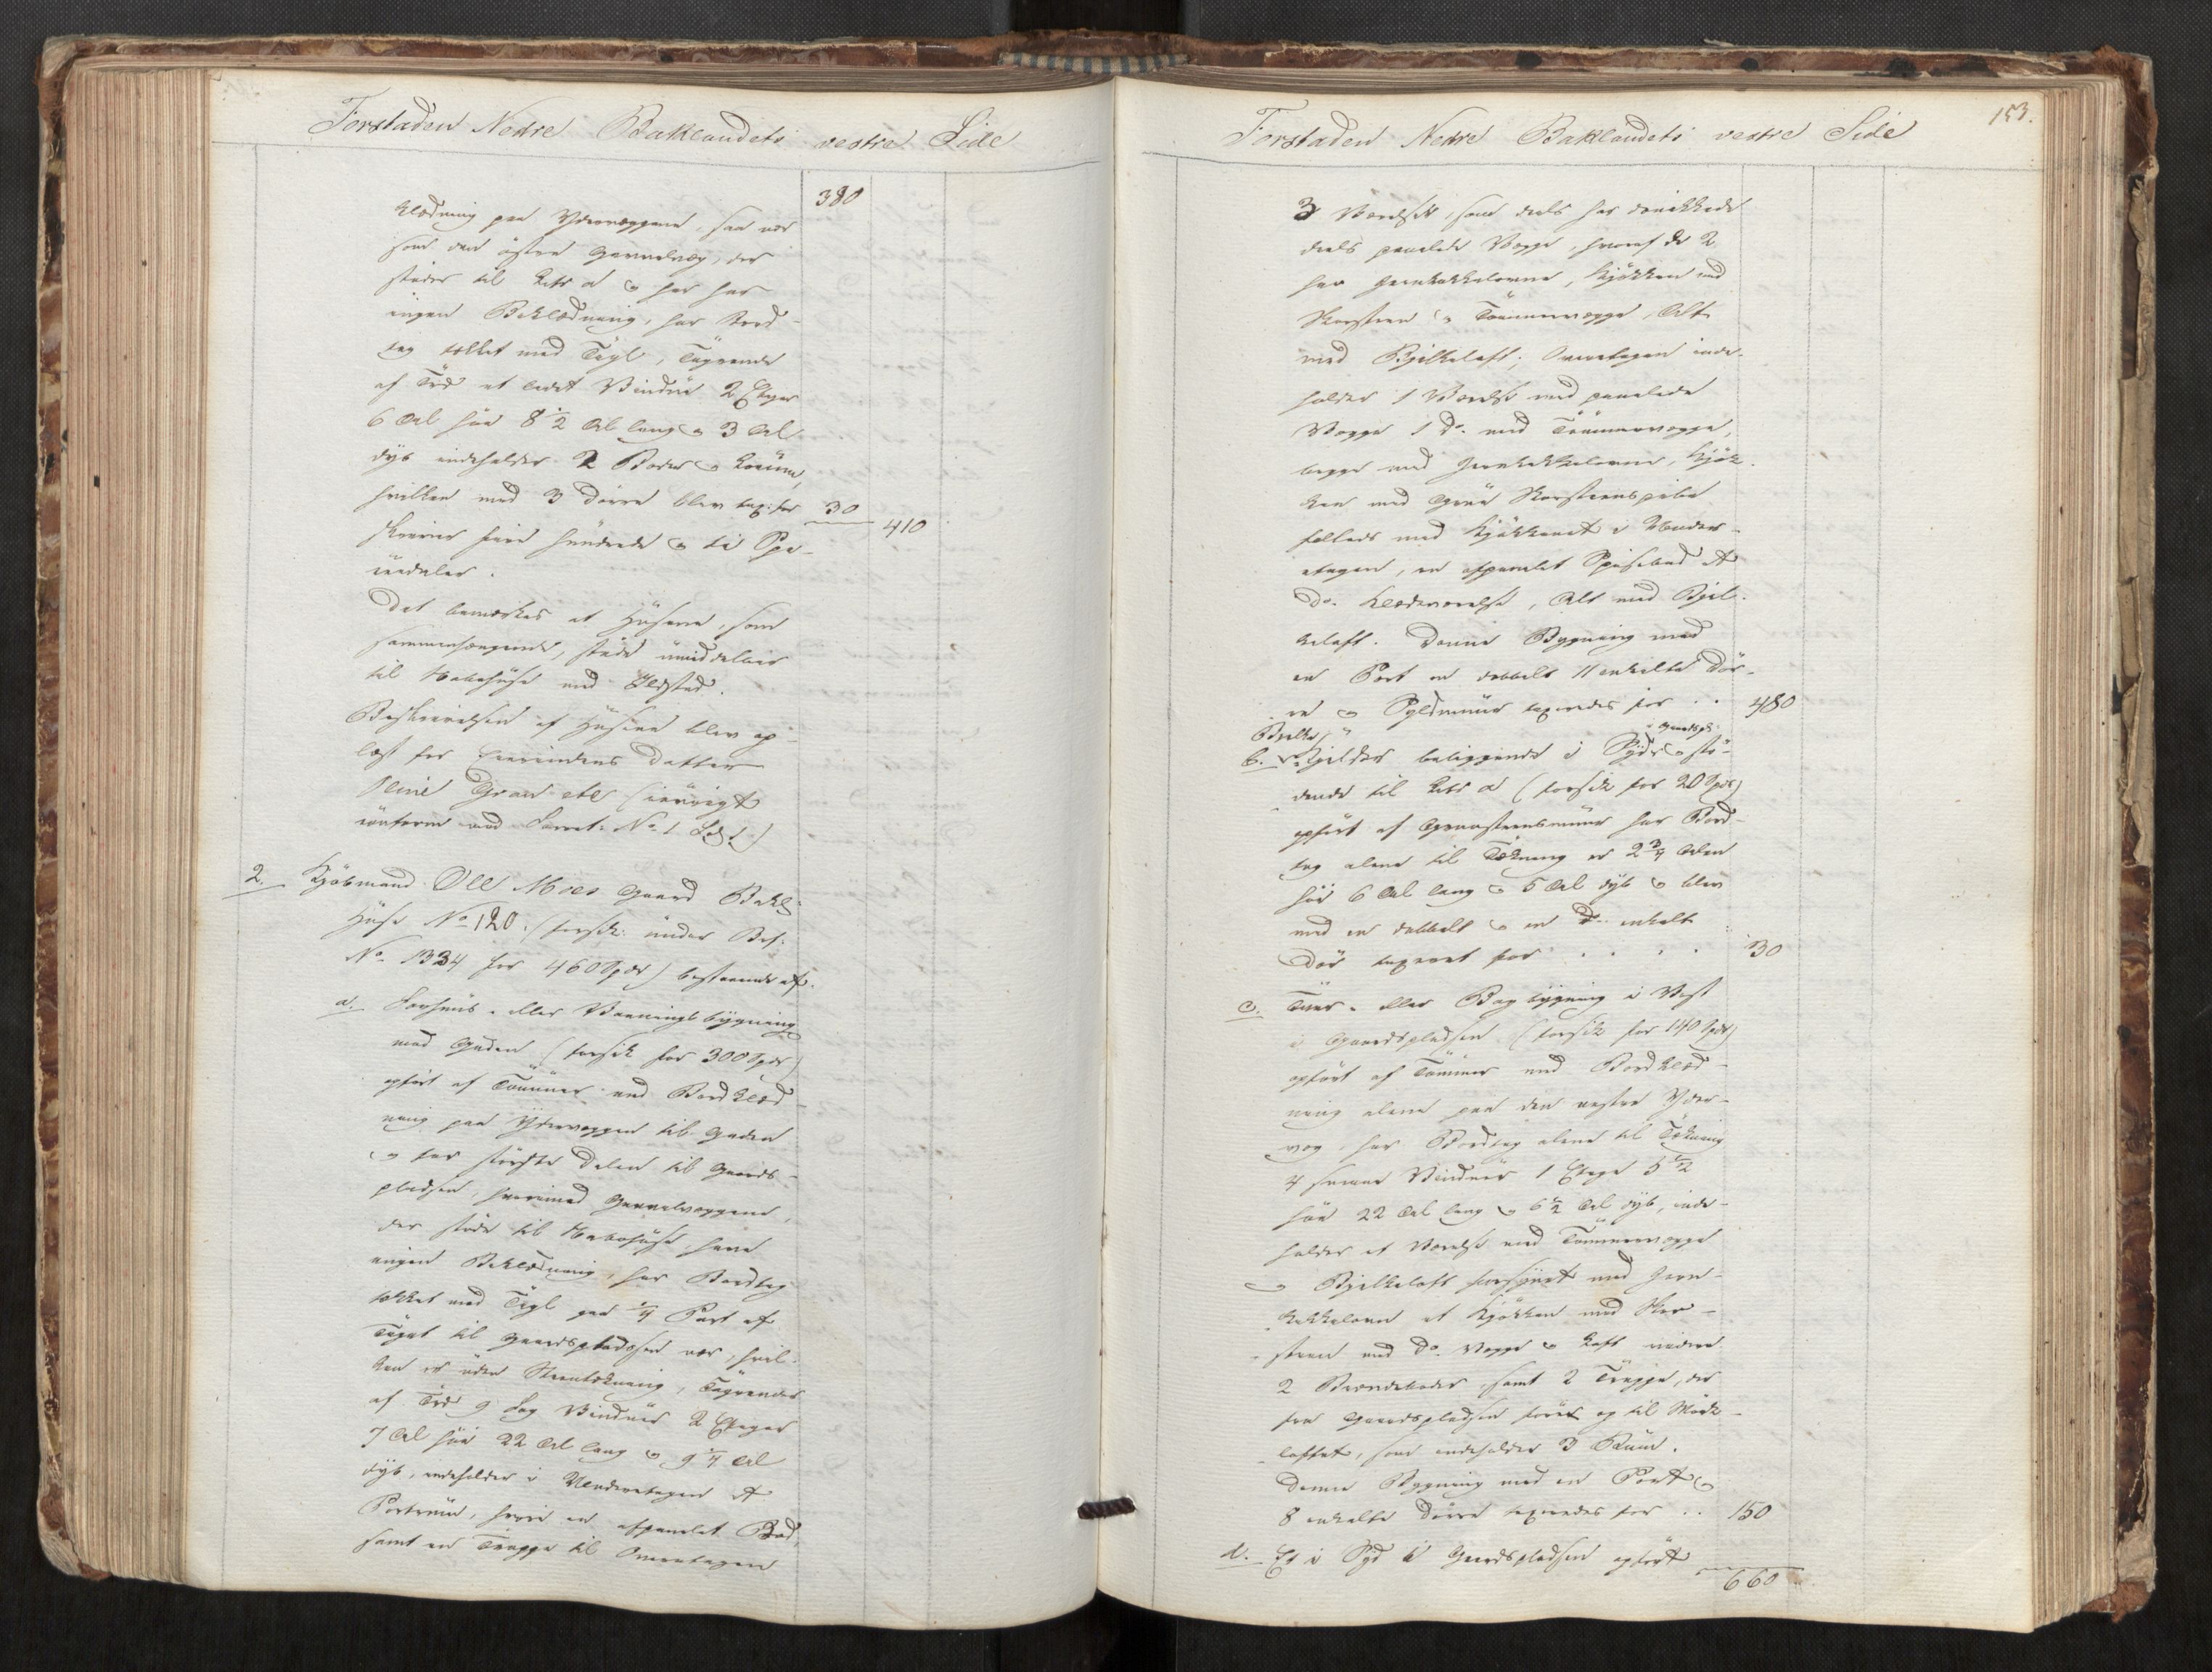 Forstaden Nedre Baklandets vestre Side
380
klædning paa Ydervæggene, saa nær
som den østre Gavelvæg, der
støder til Litr a & her har
ingen Beklædning, har Bord-
tag tækket med Tegl, Tagrende
af Træ et Vindue 2 Etager
6 Al høi 8 1/2 Al lang & 3 Al
dyb indeholder 2 Boder &
hvilken med 3 Dørre blev tax: for 30
skriver fire hundrede & ti Spe- 410
ciedaler.
Det bemærkes at Husene, som
sammenhængende, støde umiddelbar
til Nabohuse med Ildsted.
Beskrivelsen af Husene blev op-
læst for Eierindens Datter
Gran etc (iøvrigt
conform med Forret: No 1 )
2. Kjøbmand Ole Moes Gaard Bakl:
Huse No 120. (forsik: under Bes:
No 1334 for 460 Spdr) bestaaende af:
a. Forhuus- eller Vaaningsbygning
mod Gaden (forsik for 300 Spdr)
opført af Tømmer med Bordklæd-
ning paa Ydervæggen til Gaden
& for største Delen til Gaards-
pladsen, hvorimod Gavelvæggene,
der støde til Nabohuse have
ingen Beklædning, har Bordtag
tækket med Tegl paa 1/4 Part af
Taget til Gaardspladsen nær, hvil-
ken er uden Steentækning, Tagrender
af Træ 9 Fag Vinduer 2 Etager
7 Al høi 22 Al lang & 9 1/4 Al
dyb, indeholder i Underetagen et
Portrum, hvori en afpanelet Bod,
samt en Trappe til Overetagen
153.
Forstaden Nedre Baklandets vestre Side
3 Værelser, som deels har
deels panelede Vægge, hvoraf de 2
har Jernkakkelovne, Kjøkken med
Skorsteen & Tømmervægge, Alt
med Bjelkeloft; Overetagen inde-
holder 1 Værelse med panelede
Vægge 1 Do. med Tømmervægge,
begge med Jernkakkelovne, Kjøk-
ken med Skorsteenspibe
fælleds med Kjøkkenet i Under-
etagen, en afpanelet Spisebod et
Do. Klædeværelse, Alt med Bjel-
keloft. Denne Bygning med
en Port en dobbelt 11 enkelte Dør-
re & Fyldmuur taxeredes for . . 480
b. Kjelder beliggende i Syd & stø-
dende til Litr a (forsik for 20 Spdr)
opført af Graasteensmuur har Bord-
tag alene til Tækning er 2 3/4 Alen
høi 6 Al lang & 5 Al dyb & blev
med en dobbelt & en Do. enkelt
Dør taxeret for . . . . 30
c. Tver- eller Bagbygning i Vest
i Gaardspladsen (forsik for 140 Spdr)
opført af Tømmer med Bordklæd-
ning alene paa den vestre Yder-
væg, har Bordtag alene til Tækning
4 Vinduer 1 Etage 5 1/2
høi 22 Al lang & 6 1/2 Al dyb, inde-
holder et Værelse med Tømmervægge
& Bjelkeloft forsynet med Jern-
kakkelovn et Kjøkken med Skor-
steen med Do. Vægge & Loft videre
2 Brændeboder samt 2 Trapper, der
fra Gaardspladsen fører op til Mørk-
loftet, som indeholder 3 Rum.
Denne Bygning med en Port &
8 enkelte Dørre taxeredes for . . 150
d. Et i Syd til Gaardspladsen opført
660